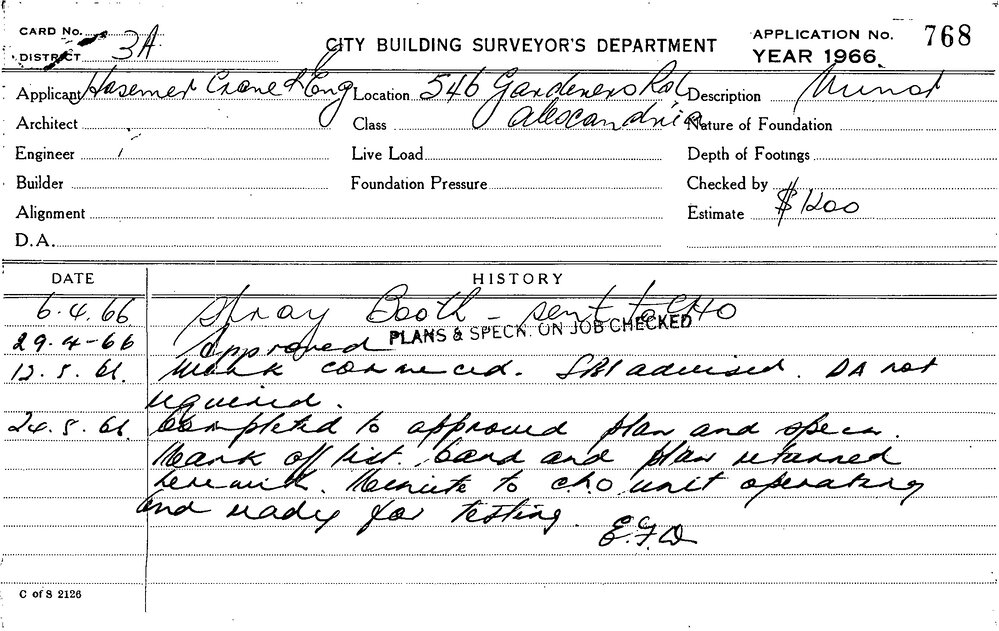 CARD No.
DISTRICT 3A
CITY BUILDING SURVEYOR'S DEPARTMENT
APPLICATION No. 768
YEAR 1966
Applicant Hosemer Crane & Eng Location 546 Gardeners Rd Alexandria Description Minor
Architect Class Nature of Foundation
Engineer Live Load Depth of Footings
Builder Foundation Pressure Checked by
Alignment Estimate $1200
D.A.
DATE HISTORY
6.4.66 Spray Booth - sent to CHO
29-4-66 approved PLANS & SPECN. ON JOB CHECKED
12.5.66. Work commenced. SBI advised. DA not
required.
24.5.66. Completed to approved plan and specn.
Mark off list. Card and plan returned
herewith. Minute to CHO unit operating
and ready for testing. E.F.D
C of S 2126